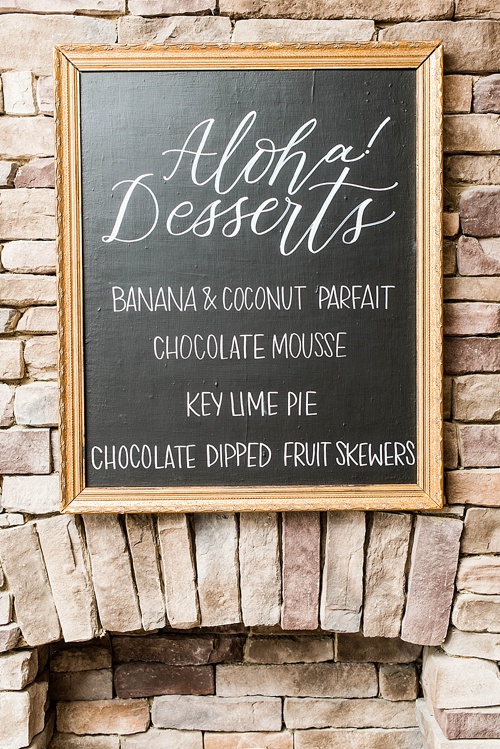 Aloha!
Desserts
BANANA & COCONUT PARFAIT
CHOCOLATE MOUSSE
KEY LIME PIE
CHOCOLATE DIPPED FRUIT SKEWERS